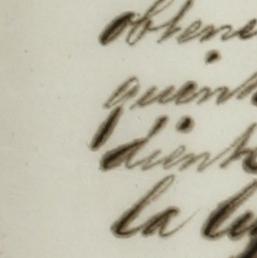 obtene
quent
dient
la lu